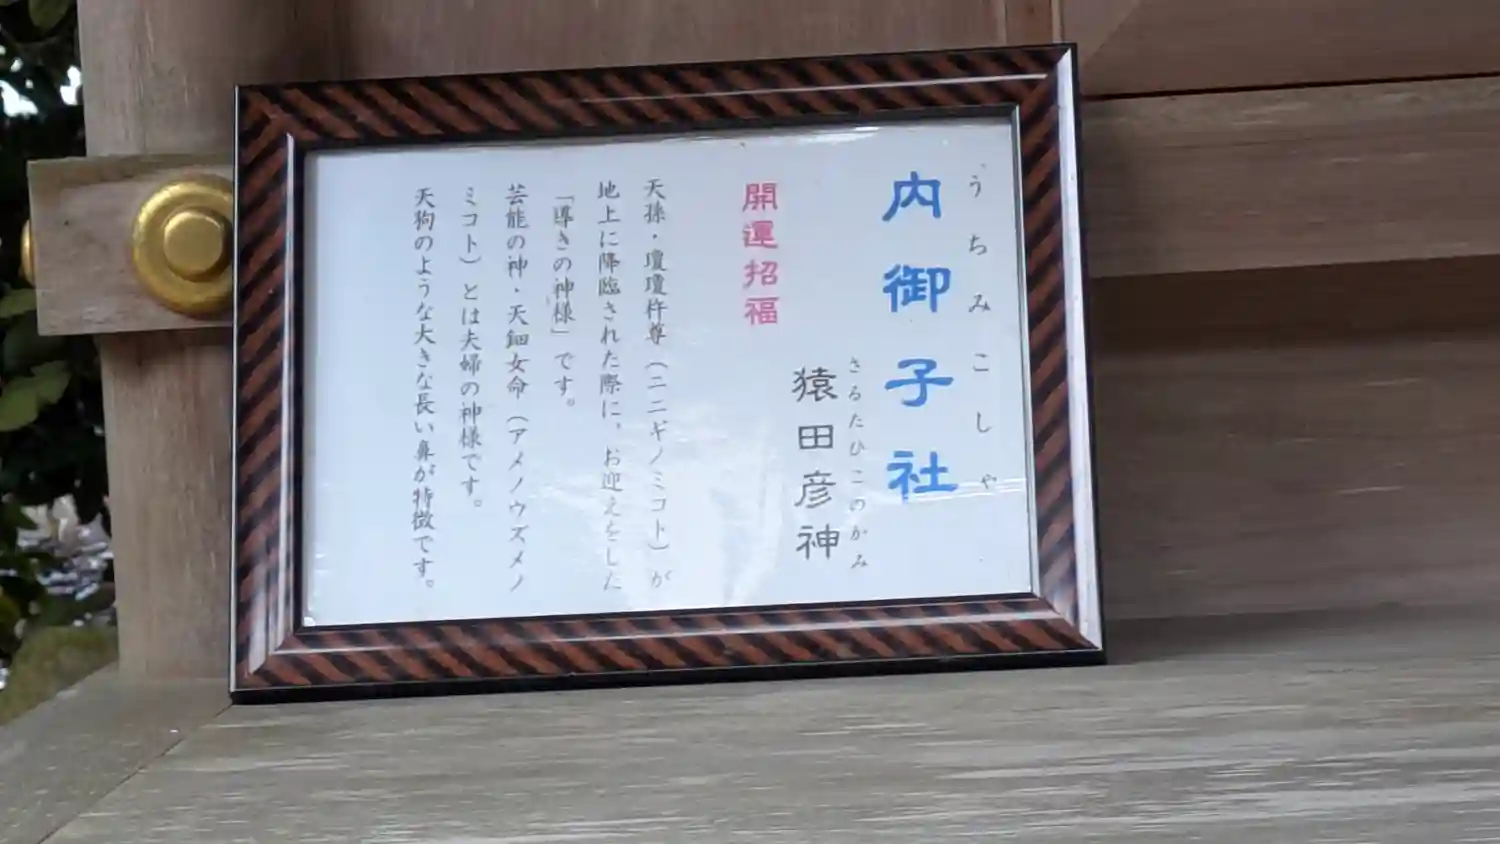 うちみこしゃ
内御子社
さるたひこのかみ
猿田彦神
開運招福
天孫・瓊瓊杵尊（ニニギノミコト）が
地上に降臨された際に、お迎えをした
「導きの神様」です。
芸能の神・天鈿女命（アメノウズメノ
ミコト）とは夫婦の神様です。
天狗のような大きな長い鼻が特徴です。